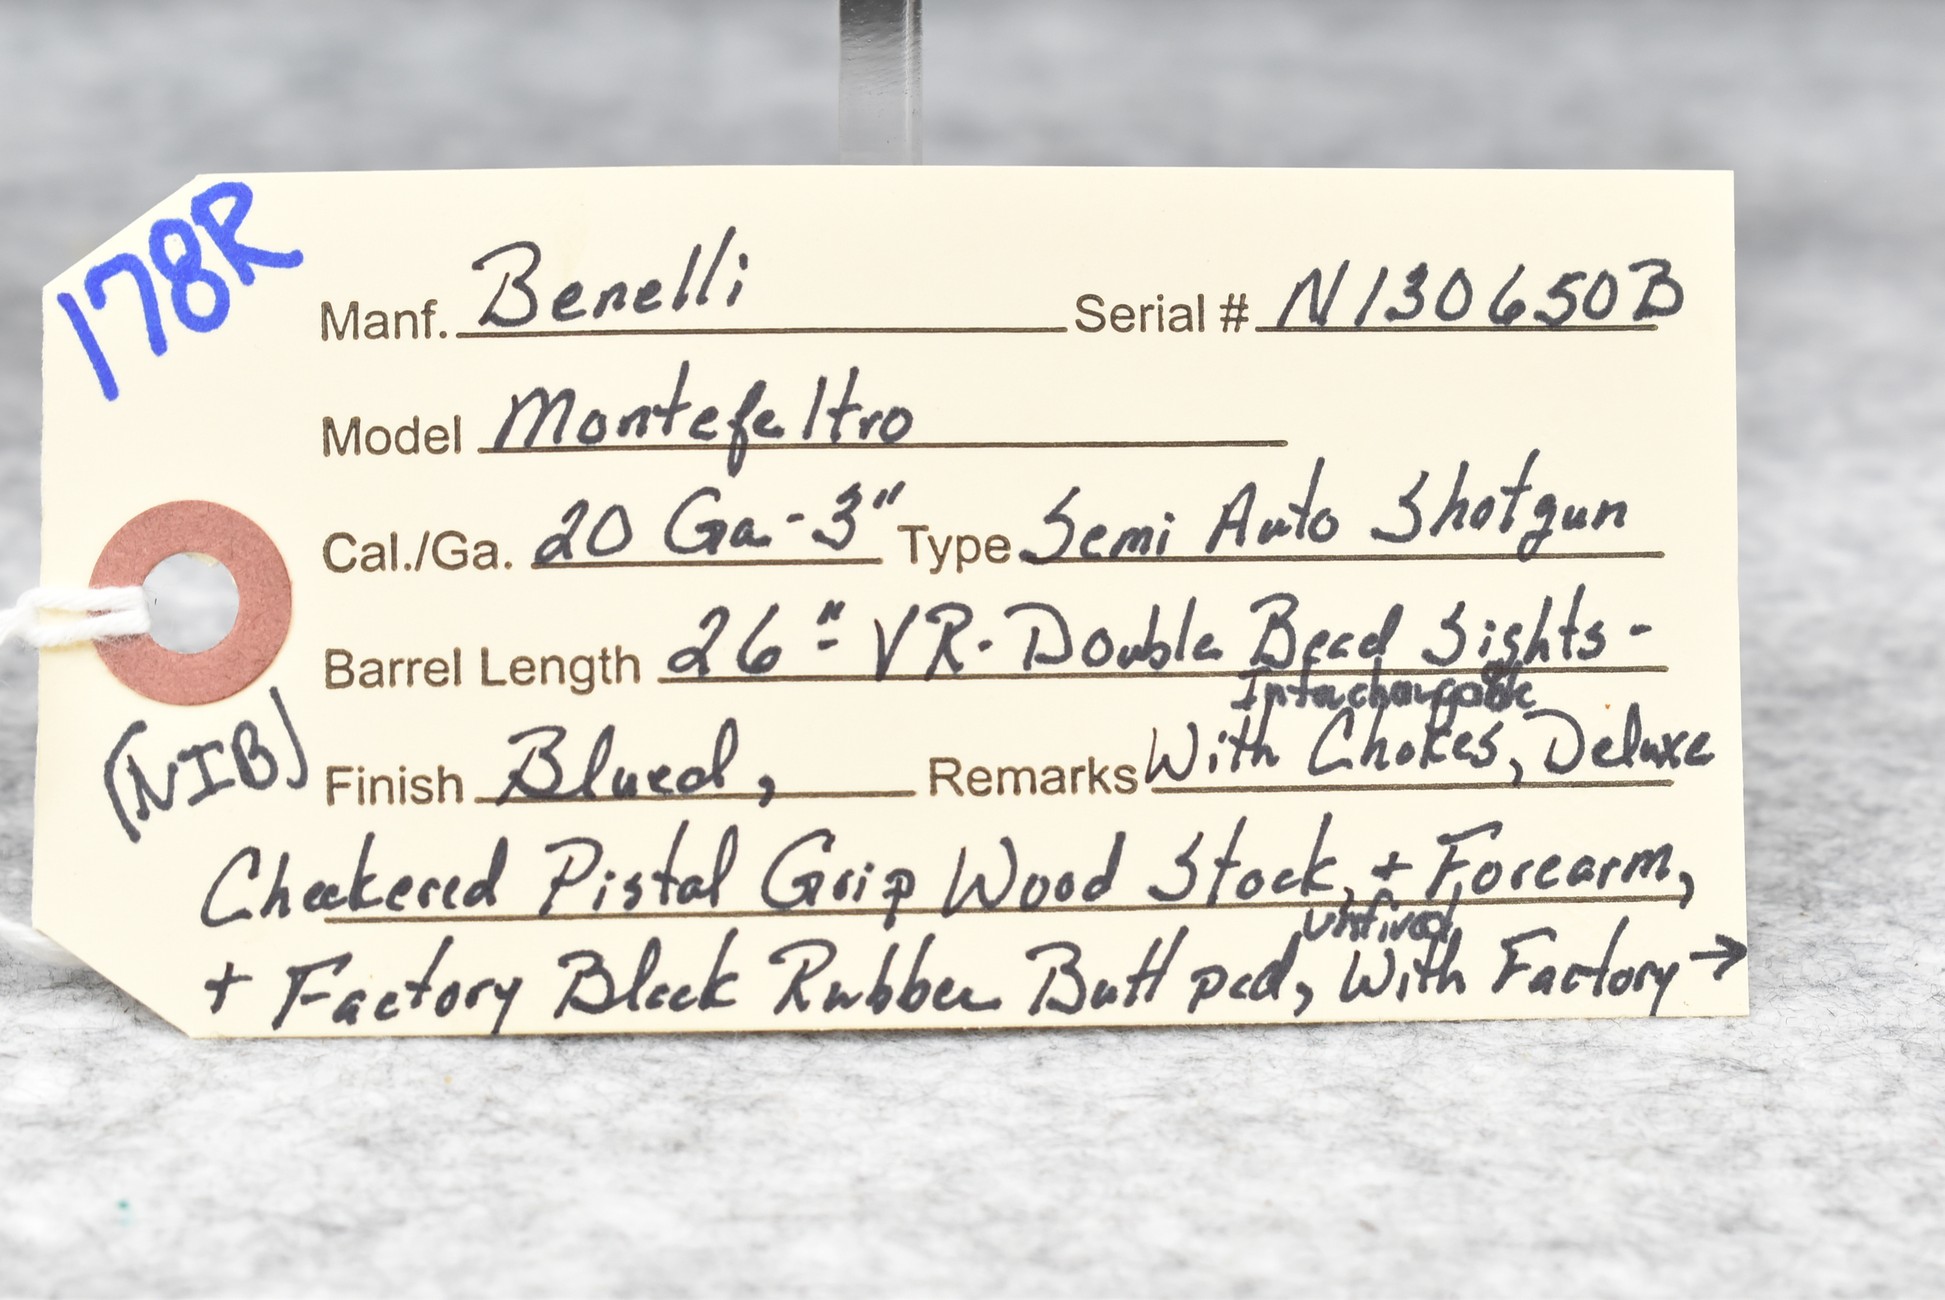 178R
Manf. Benelli Serial # N130650B
Model Montefeltro
Cal./Ga. 20 Ga.-3" Type Semi Auto Shotgun
Barrel Length 26"- VR- Double Bead Sights-
Interchangable
(NIB) Finish Blued, Remarks With Chokes, Deluxe
Checkered Pistal Grip Wood Stock, + Forearm,
unfired,
+ Factory Black Rubber Butt pad, With Factory →